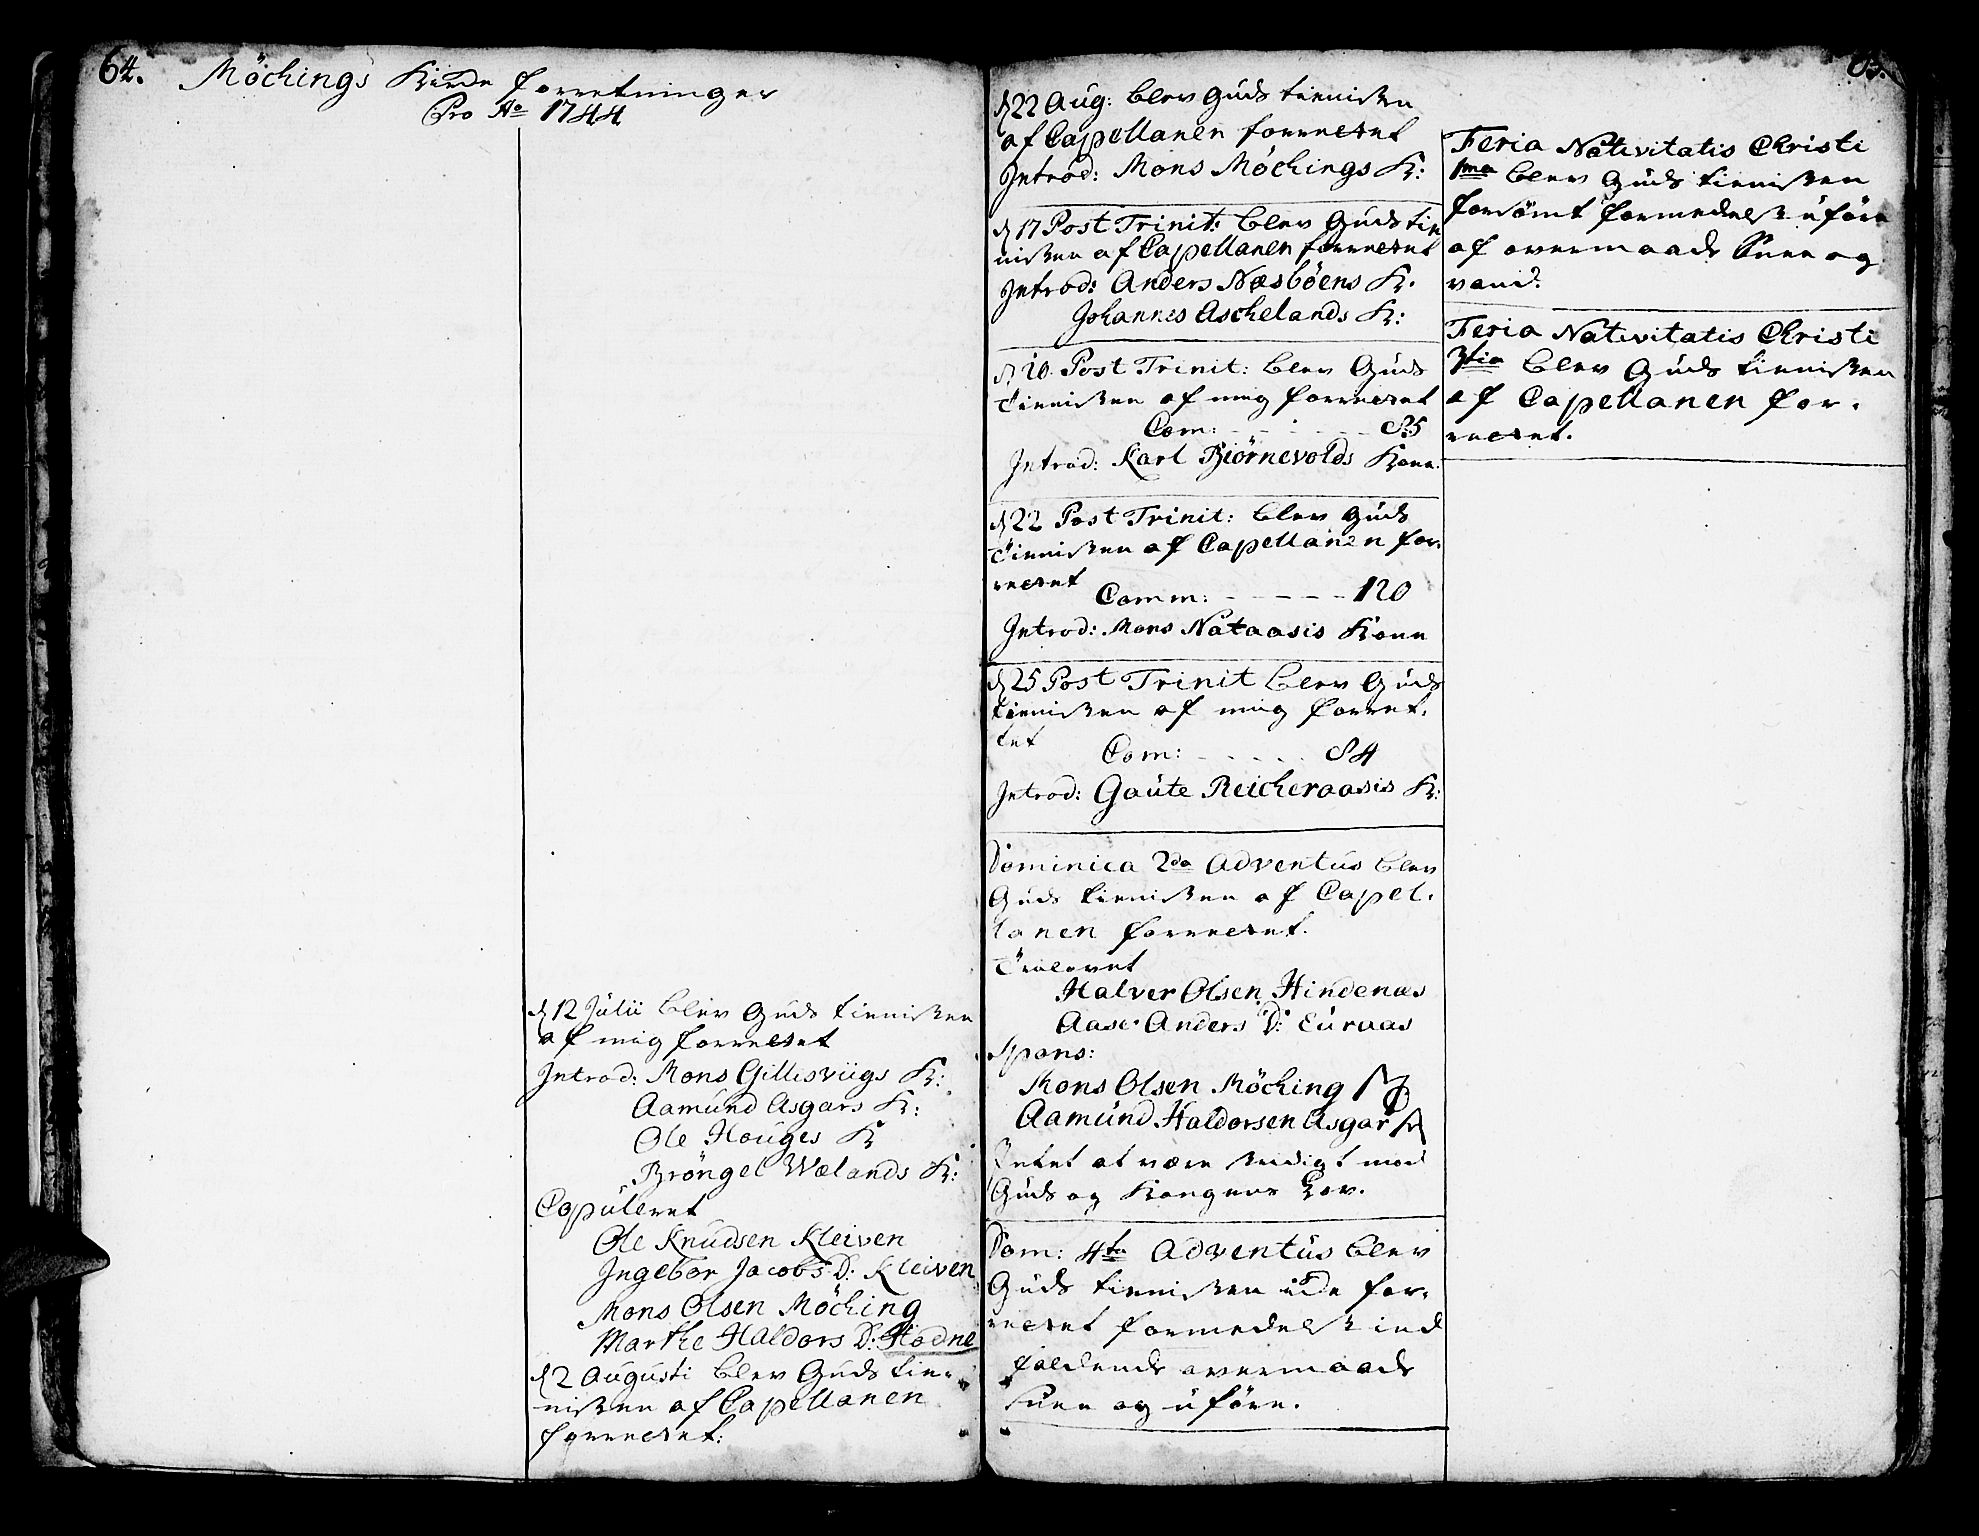 64.
Möckings Kirke forretninger
Pro Ao 1744
d 12 Julii blev Guds tienisten
af mig forrettet
Introd: Mons Gillisviigs K:
Aamund Asgars K:
Ole Houges K
Bröngel Wælands K:
Copuleret
Ole Knudsen Kleiven
Ingebor Jacobs D: Kleiven
Mons Olsen Möching
Marthe Haldors D: Hodne
d 2 Augusti blev Guds tie-
nisten af Capellanen
forrettet:
d 22 Aug: blev Guds tienisten
af Capellanen forrettet
Introd: Mons Möchings K:
d 17 Post Trinit: blev Guds tie
nisten af Capellanen forrettet
Introd: Anders Næsböens K.
Johannes Aschelands K:
d 20. Post Trinit: blev Guds
tienisten af mig forrettet
Com: - - - - - 85
Introd: Karl Biörnevolds Kone.
d 22 Post Trinit: blev Guds
tienisten af Capellanen for-
rettet
Comm: - - - - - 120
Introd: Mons Nataasis Kone
d 25 Post Trinit blev Guds
tienisten af mig forret-
tet
Com: - - - - - 84
Introd: Gaute Reicheraasis K:
Dominica 2da Adventus blev
Guds tienisten af Capel-
lanen forrettet.
Trolovet
Halver Olsen Hindenæs
Aase Anders D: Euraas
Spons:
Mons Olsen Möching
Aamund Haldorsen Asgar
Intet at være stridigt mod
Guds og Kongens Lov.
Dom: 4ta Adventus blev
Guds tienisten icke for-
rettet formedelst ind
faldende overmaade
Snee og uföre.
Feria Nativitatis Christi
1ma blev Guds tienisten
forsömt formedelst uföre
af overmaade Snee og
vand.
Feria Nativitatis Christi
3tia blev Guds tienisten
af Capellanen for-
rettet.